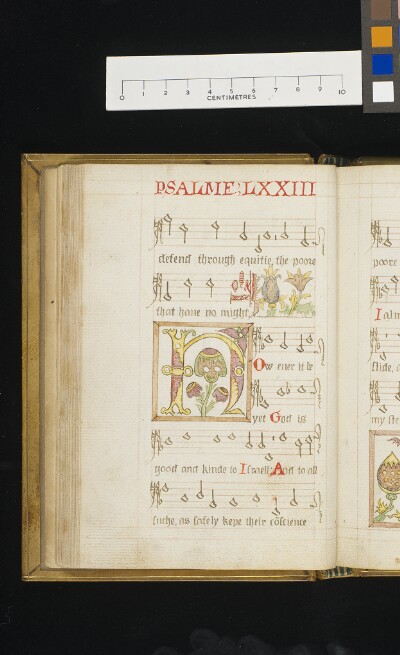 0 1 2 3 4 5 6 7 8 9 10
CENTIMETRES
PSALME: LXXIII
defend through equitie, the poore
that haue no might.
How euer it be
yet God is
good and kinde to Israell: And to all
suche, as safely kepe their cōscience
poore
I alm
slide, a
my ste